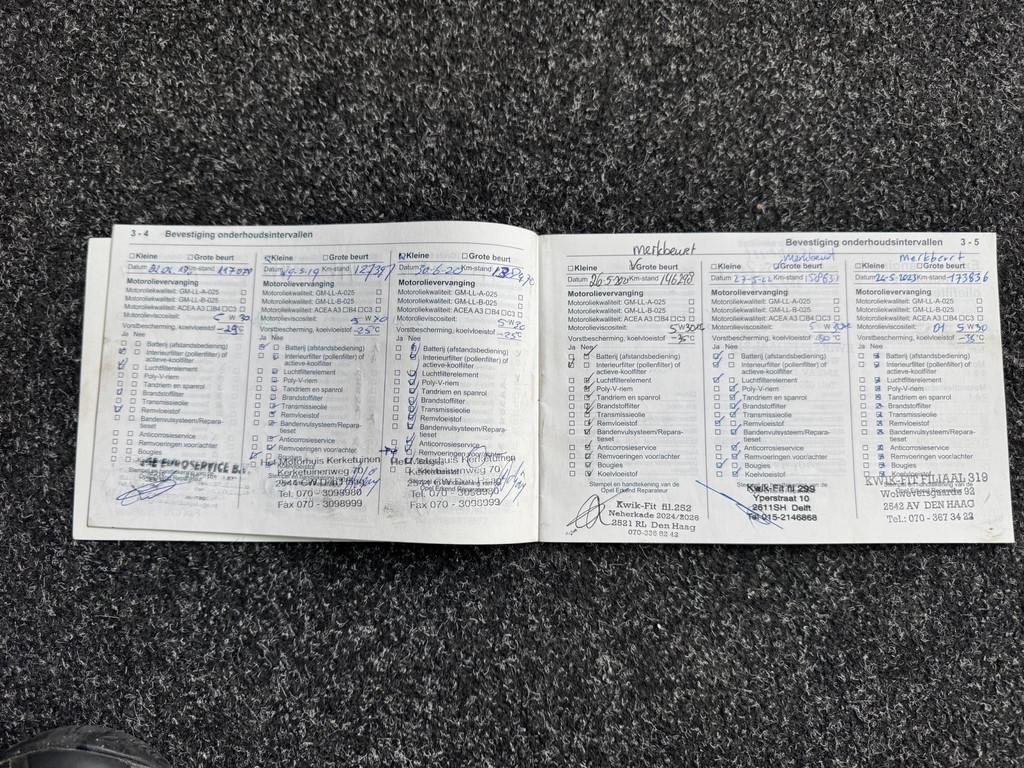 3 - 4 Bevestiging onderhoudsintervallen
☐ Kleine ☐ Grote beurt
Datum Km-stand 117070
Motorolievervanging
Motoroliekwaliteit: GM-LL-A-025 ☐
Motoroliekwaliteit: GM-LL-B-025 ☐
Motoroliekwaliteit: ACEA A3 ☐ B4 ☐ C3 ☐
Motorolieviscositeit: 5 W 30
Vorstbescherming, koelvloeistof -25°C
Ja Nee
Batterij (afstandsbediening)
Interieurfilter (pollenfilter) of
actieve-koolfilter
Luchtfilterelement
Poly-V-riem
Tandriem en spanrol
Brandstoffilter
Transmissieolie
Remvloeistof
Bandenvulsysteem/Repara-
tieset
Anticorrosieservice
Remvoeringen voor/achter
Bougies
EUROSERVICE B.V.
Kleine ☐ Grote beurt
Datum 29-5-19 Km-stand 127397
Motorolievervanging
Motoroliekwaliteit: GM-LL-A-025 ☐
Motoroliekwaliteit: GM-LL-B-025 ☐
Motoroliekwaliteit: ACEA A3 ☐ B4 ☐ C3 ☐
Motorolieviscositeit: 5 W 30
Vorstbescherming, koelvloeistof -25°C
Ja Nee
Batterij (afstandsbediening)
Interieurfilter (pollenfilter) of
actieve-koolfilter
Luchtfilterelement
Poly-V-riem
Tandriem en spanrol
Brandstoffilter
Transmissieolie
Remvloeistof
Bandenvulsysteem/Repara-
tieset
Anticorrosieservice
Remvoeringen voor/achter
Het Motorhuis Kerketuinen
Kerketuinenweg 70
2544 CW Den Haag
Tel. 070 - 3098980
Fax 070 - 3098999
Kleine ☐ Grote beurt
Datum 30-6-20 Km-stand
Motorolievervanging
Motoroliekwaliteit: GM-LL-A-025 ☐
Motoroliekwaliteit: GM-LL-B-025 ☐
Motoroliekwaliteit: ACEA A3 ☐ B4 ☐ C3 ☐
Motorolieviscositeit: 5 W 30
Vorstbescherming, koelvloeistof -25°C
Ja Nee
Batterij (afstandsbediening)
Interieurfilter (pollenfilter) of
actieve-koolfilter
Luchtfilterelement
Poly-V-riem
Tandriem en spanrol
Brandstoffilter
Transmissieolie
Remvloeistof
Bandenvulsysteem/Repara-
tieset
Anticorrosieservice
Remvoeringen voor/achter
Het Motorhuis Kerketuinen
Kerketuinenweg 70
2544 CW Den Haag
Tel. 070 - 3098980
Fax 070 - 3098999
Bevestiging onderhoudsintervallen 3 - 5
merkbeurt
☐ Kleine Grote beurt
Datum 26-5-2021 Km-stand 146298
Motorolievervanging
Motoroliekwaliteit: GM-LL-A-025 ☐
Motoroliekwaliteit: GM-LL-B-025 ☐
Motoroliekwaliteit: ACEA A3 ☐ B4 ☐ C3 ☐
Motorolieviscositeit: 5 W 30
Vorstbescherming, koelvloeistof -35°C
Ja Nee
Batterij (afstandsbediening)
Interieurfilter (pollenfilter) of
actieve-koolfilter
Luchtfilterelement
Poly-V-riem
Tandriem en spanrol
Brandstoffilter
Transmissieolie
Remvloeistof
Bandenvulsysteem/Repara-
tieset
Anticorrosieservice
Remvoeringen voor/achter
Bougies
Koelvloeistof
Stempel en handtekening van de
Opel Erkend Reparateur
Kwik-Fit fil.252
Neherkade 2024/2026
2521 RL Den Haag
070-336 82 42
merkbeurt
☐ Kleine Grote beurt
Datum 27-5-22 Km-stand
Motorolievervanging
Motoroliekwaliteit: GM-LL-A-025 ☐
Motoroliekwaliteit: GM-LL-B-025 ☐
Motoroliekwaliteit: ACEA A3 ☐ B4 ☐ C3 ☐
Motorolieviscositeit: 5 W 30
Vorstbescherming, koelvloeistof
Ja Nee
Batterij (afstandsbediening)
Interieurfilter (pollenfilter) of
actieve-koolfilter
Luchtfilterelement
Poly-V-riem
Tandriem en spanrol
Brandstoffilter
Transmissieolie
Remvloeistof
Bandenvulsysteem/Repara-
tieset
Anticorrosieservice
Remvoeringen voor/achter
Bougies
Koelvloeistof
Kwik-Fit fil 299
Yperstraat 10
2611SH Delft
Tel 015-2146868
merkbeurt
☐ Kleine ☐ Grote beurt
Datum 24-5-2023 Km-stand 173836
Motorolievervanging
Motoroliekwaliteit: GM-LL-A-025 ☐
Motoroliekwaliteit: GM-LL-B-025 ☐
Motoroliekwaliteit: ACEA A3 ☐ B4 ☐ C3 ☐
Motorolieviscositeit: D1 5 W 30
Vorstbescherming, koelvloeistof -35°C
Ja Nee
Batterij (afstandsbediening)
Interieurfilter (pollenfilter) of
actieve-koolfilter
Luchtfilterelement
Poly-V-riem
Tandriem en spanrol
Brandstoffilter
Transmissieolie
Remvloeistof
Bandenvulsysteem/Repara-
tieset
Anticorrosieservice
Remvoeringen voor/achter
Bougies
Koelvloeistof
KWIK-FIT FILIAAL 319
92
2542 AV DEN HAAG
Tel.: 070 - 367 34 22